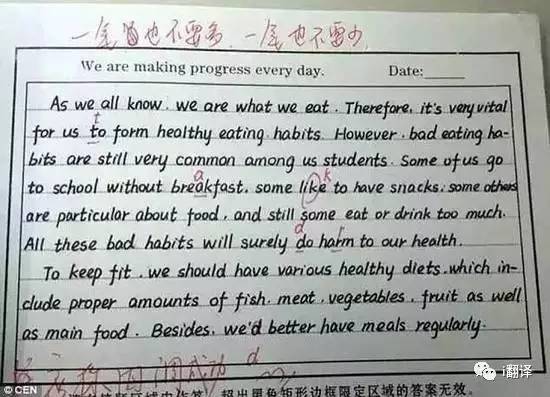 一笔也不要多、一笔也不要少
We are making progress every day. Date:
As we all know, we are what we eat. Therefore, it's very vital
t
for us to form healthy eating habits. However, bad eating ha-
bits are still very common among us students. Some of us go
a k
to school without breakfast, some like to have snacks, some others
are particular about food, and still some eat or drink too much.
d r
All these bad habits will surely do harm to our health.
To keep fit, we should have various healthy diets, which in-
clude proper amounts of fish, meat, vegetables, fruit as well
as main food. Besides, we'd better have meals regularly.
成功 d
区域内作答，超出黑色矩形边框限定区域的答案无效。
© CEN
i翻译